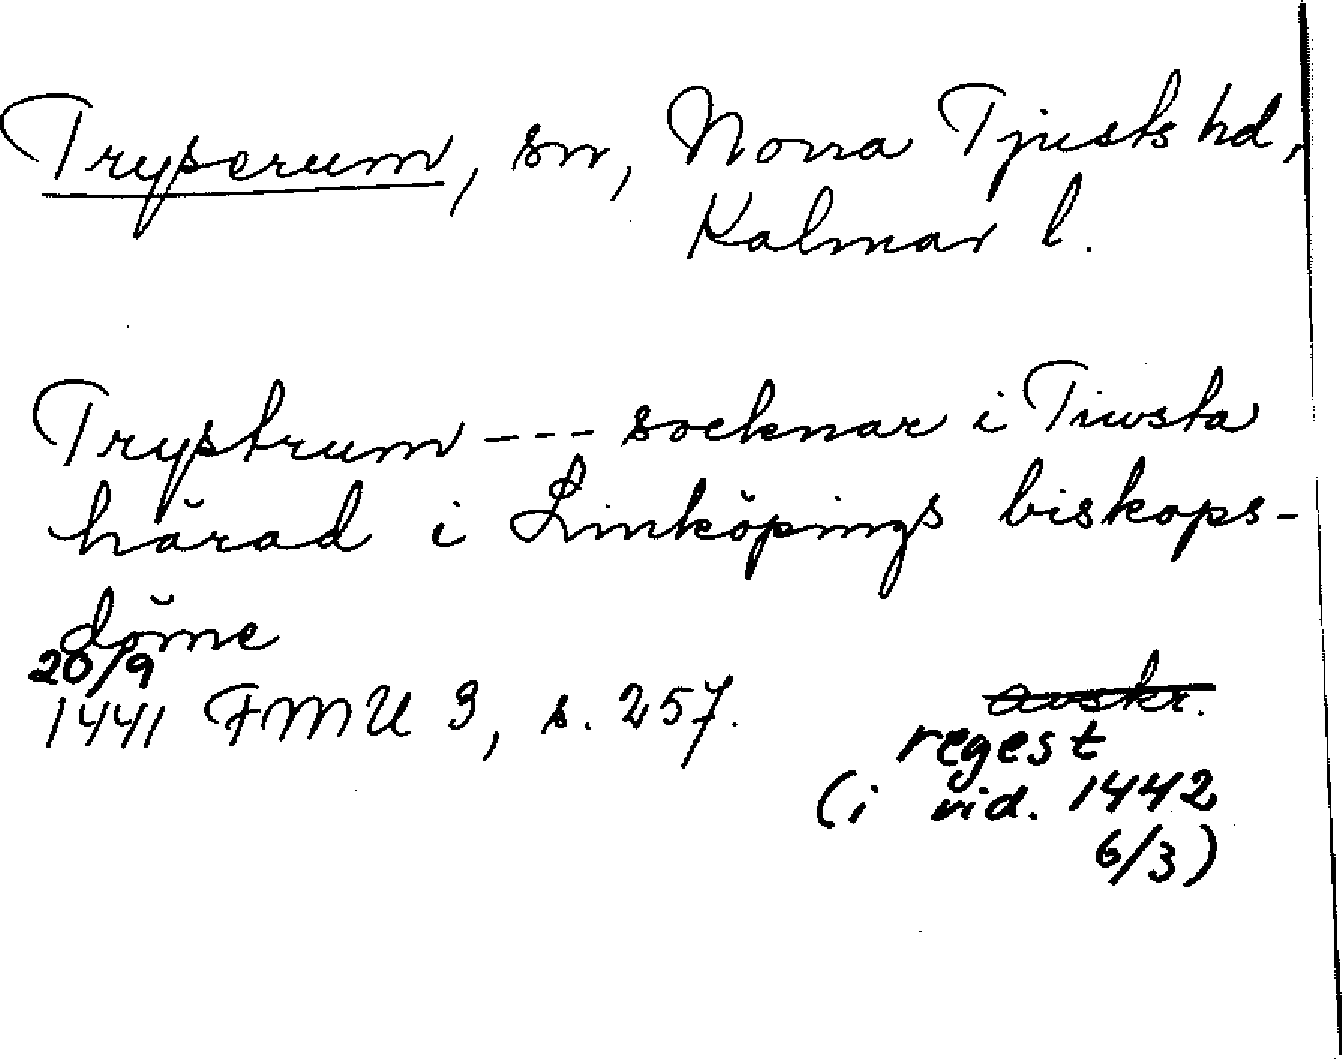 Tryserum, sn, Norra Tjusts hd,
Kalmar l.
Trystrum --- socknar i Tiwsta
härad i Linköpings biskops-
döme
20/9
1441 FMU 3, s. 257.
avskr.
regest
(i vid. 1442
6/3)